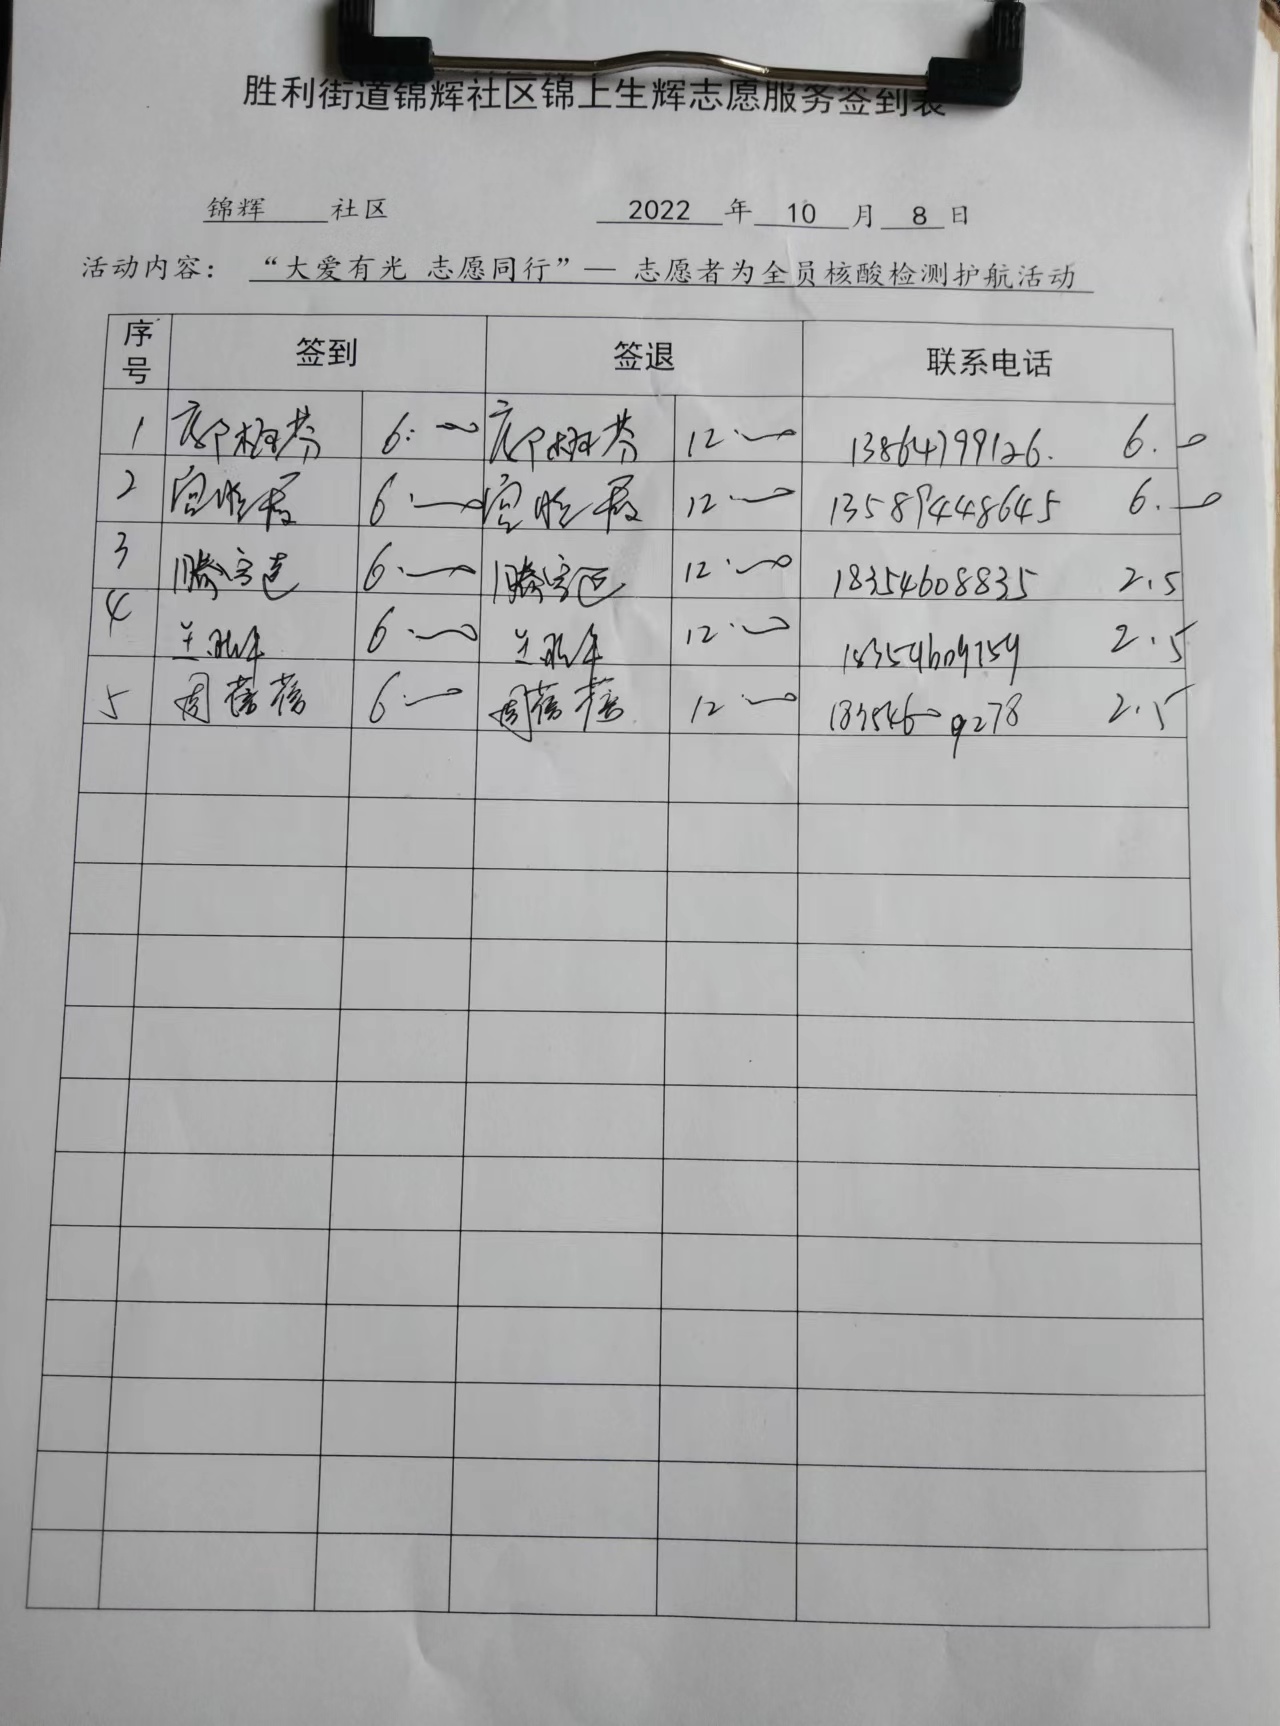 胜利街道锦辉社区锦上生辉志愿服务签到表
锦辉 社区 2022 年 10 月 8 日
活动内容： “大爱有光 志愿同行”— 志愿者为全员核酸检测护航活动
序号 签到 签退 联系电话
1 6:00 12:00 13864799126. 6.0
2 6:00 12:00 13589448645 6.0
3 6:00 12:00 18354608835 2.5
4 6:00 12:00 18354609759 2.5
5 周蓓蓓 6:00 周蓓蓓 12:00 18354609278 2.5